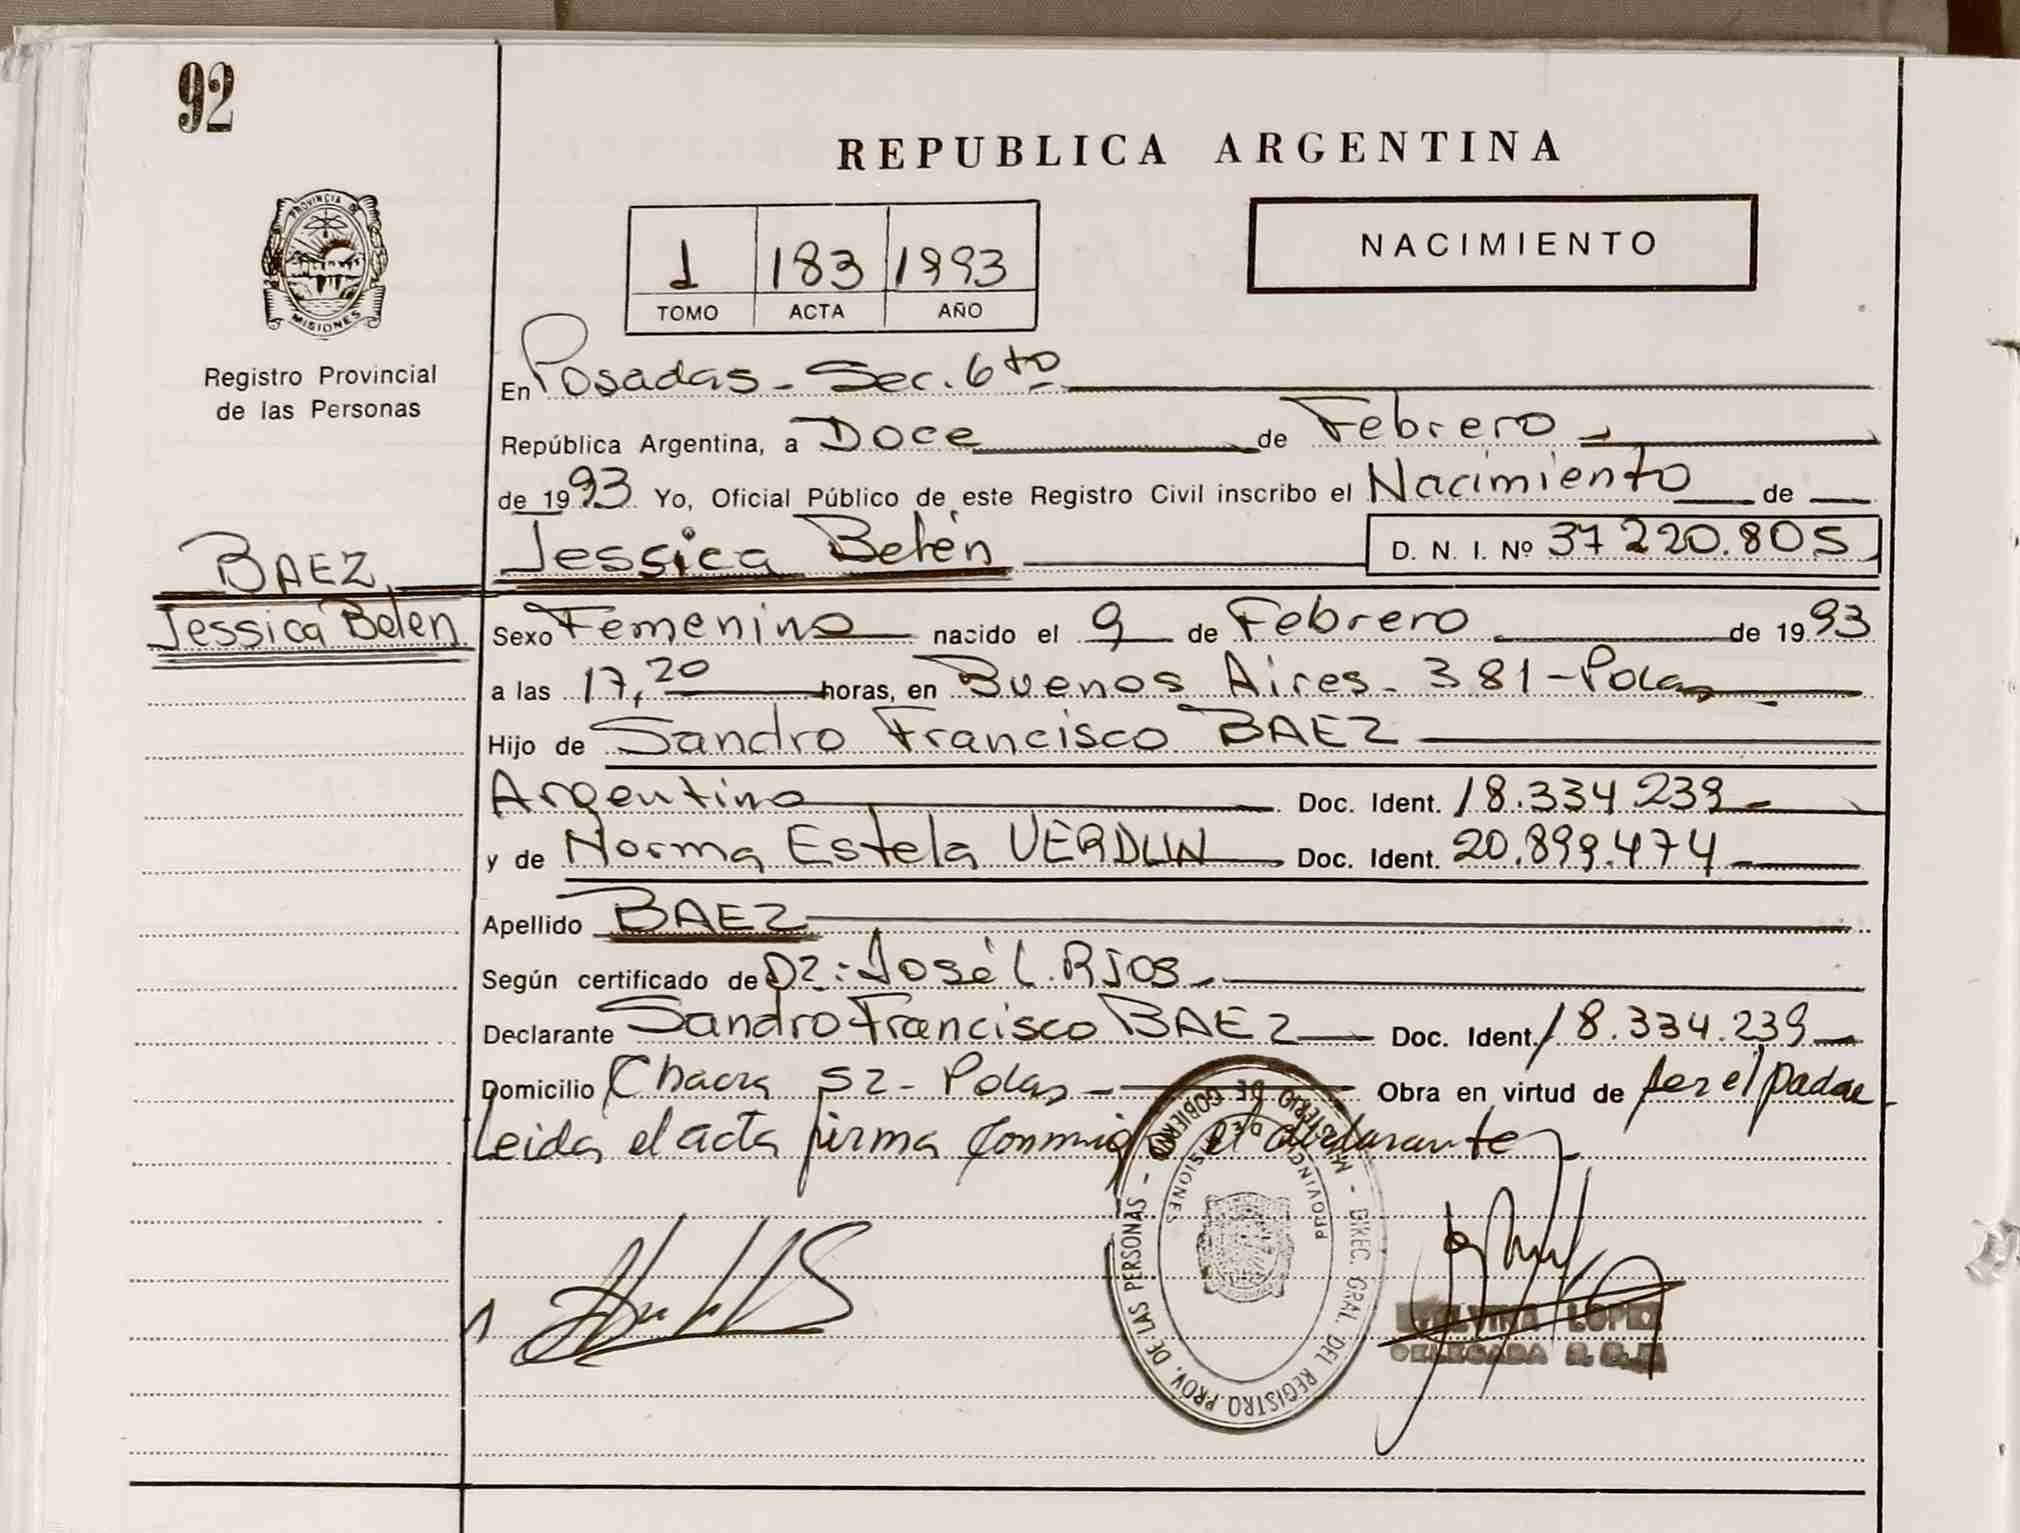 92
REPUBLICA ARGENTINA
PROVINCIA DE
MISIONES
Registro Provincial
de las Personas
1 183 1993
TOMO ACTA AÑO
NACIMIENTO
En Posadas - Sec. 6to
República Argentina, a Doce de Febrero
de 1993 Yo, Oficial Público de este Registro Civil inscribo el Nacimiento de
Jessica Belén D. N. I. Nº 37 220.805
BAEZ
Jessica Belen
Sexo Femenino nacido el 9 de Febrero de 1993
a las 17,20 horas, en Buenos Aires - 381 - Pdas
Hijo de Sandro Francisco BAEZ
Argentino Doc. Ident. 18.334.239
y de Norma Estela VERDUN Doc. Ident. 20.899.474
Apellido BAEZ
Según certificado de Dz: José L. RIOS
Declarante Sandro Francisco BAEZ Doc. Ident. 18.334.239
Domicilio Chacra 52 - Pdas - Obra en virtud de ser el padre
Leida el acta firma conmigo el declarante
DIREC. GRAL. DEL REGISTRO PROV. DE LAS PERSONAS - MINISTERIO DE GOBIERNO
PROVINCIA DE MISIONES
LOPEZ
DELEGADA